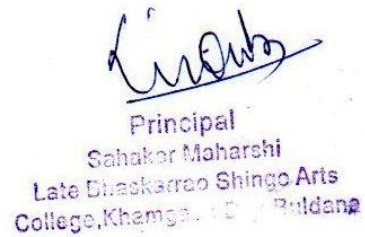 Principal
Sahakar Maharshi
Late Bhaskarrao Shingo Arts
College,Khamga Buldana